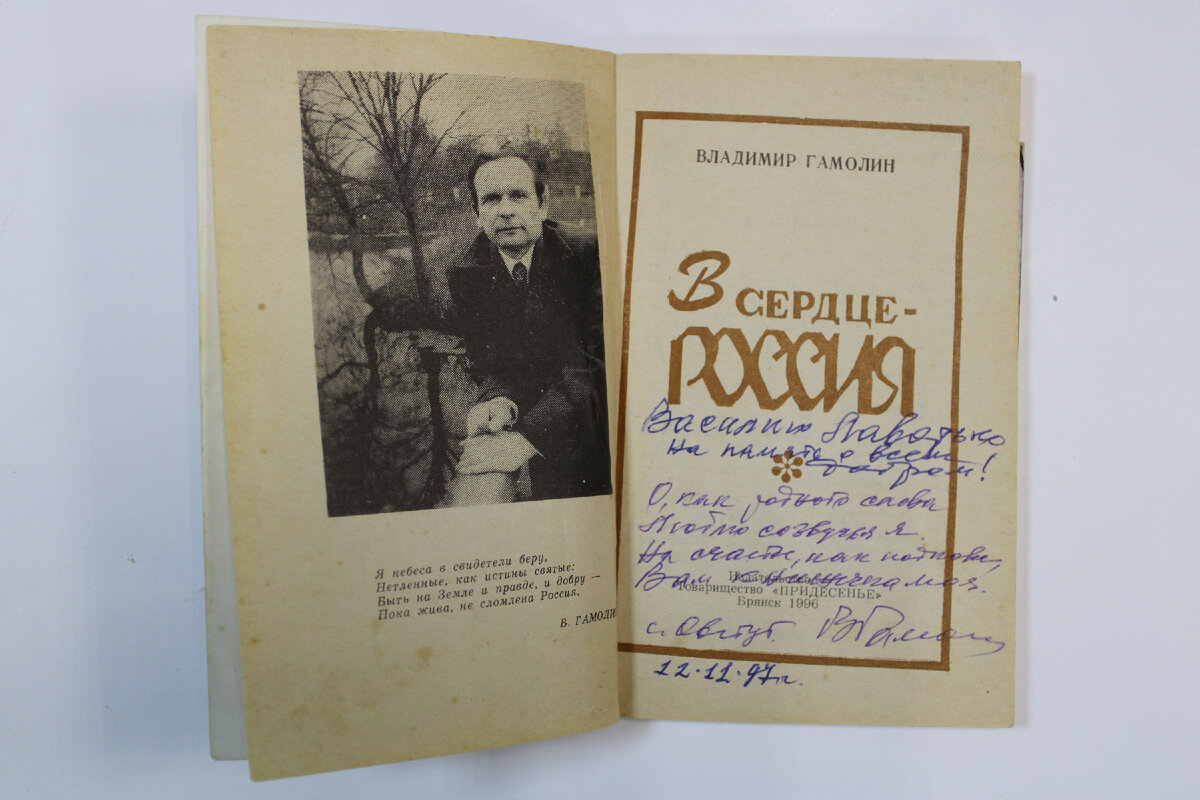 Я небеса в свидетели беру,
Нетленные, как истины святые:
Быть на Земле и правде, и добру —
Пока жива, не сломлена Россия.
В. ГАМОЛИН
ВЛАДИМИР ГАМОЛИН
В СЕРДЦЕ-
РОССИЯ
Василию
На память о всем
добром!
О, как родного слова
Люблю созвучья я.
На счастье, как подкова,
Вам книжечка моя.
Издательство
Товарищество «ПРИДЕСЕНЬЕ»
Брянск 1996
с. Овстуг. ВГамолин
12.11.97г.